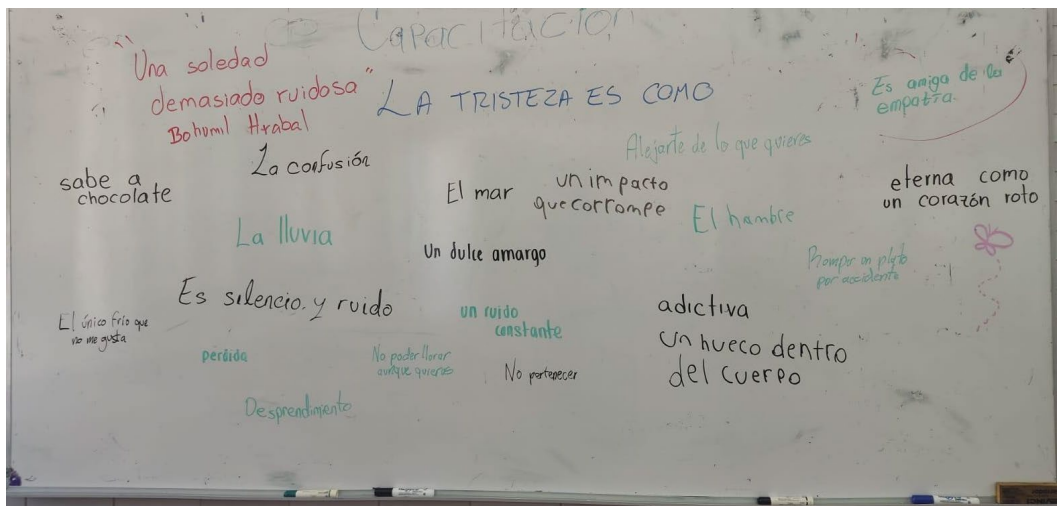 Capacitación
"Una soledad
demasiado ruidosa"
Bohumil Hrabal
LA TRISTEZA ES COMO
Es amiga de la
empatía.
Alejarte de lo que quieres
La confusión
sabe a
chocolate
El mar
un impacto
que corrompe
eterna como
un corazón roto
El hambre
La lluvia
Un dulce amargo
Romper un plato
por accidente
Es silencio y ruido
un ruido
constante
adictiva
El único frío que
no me gusta
un hueco dentro
del cuerpo
perdida
No poder llorar
aunque quieras
No pertenecer
Desprendimiento